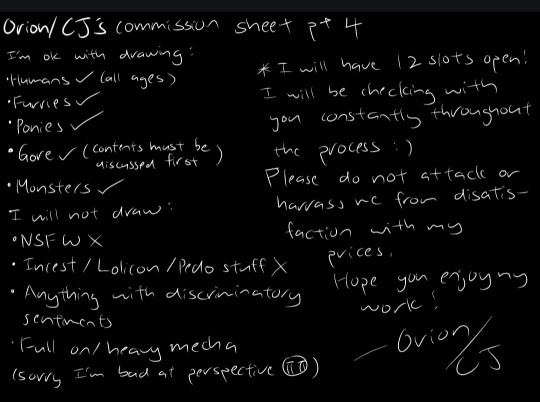 Orion/CJ's commission sheet pt 4
I'm ok with drawing:
•Humans ✓ (all ages)
•Furries ✓
•Ponies ✓
•Gore ✓ (contents must be
discussed first)
•Monsters ✓
I will not draw:
•NSFW X
•Incest/Lolicon/Pedo stuff X
•Anything with discriminatory
sentiments
•Full on/heavy mecha
(sorry I'm bad at perspective)
* I will have 12 slots open!
I will be checking with
you constantly throughout
the process :)
Please do not attack or
harrass me from disatis-
faction with my
prices.
Hope you enjoy my
work!
— Orion/
CJ